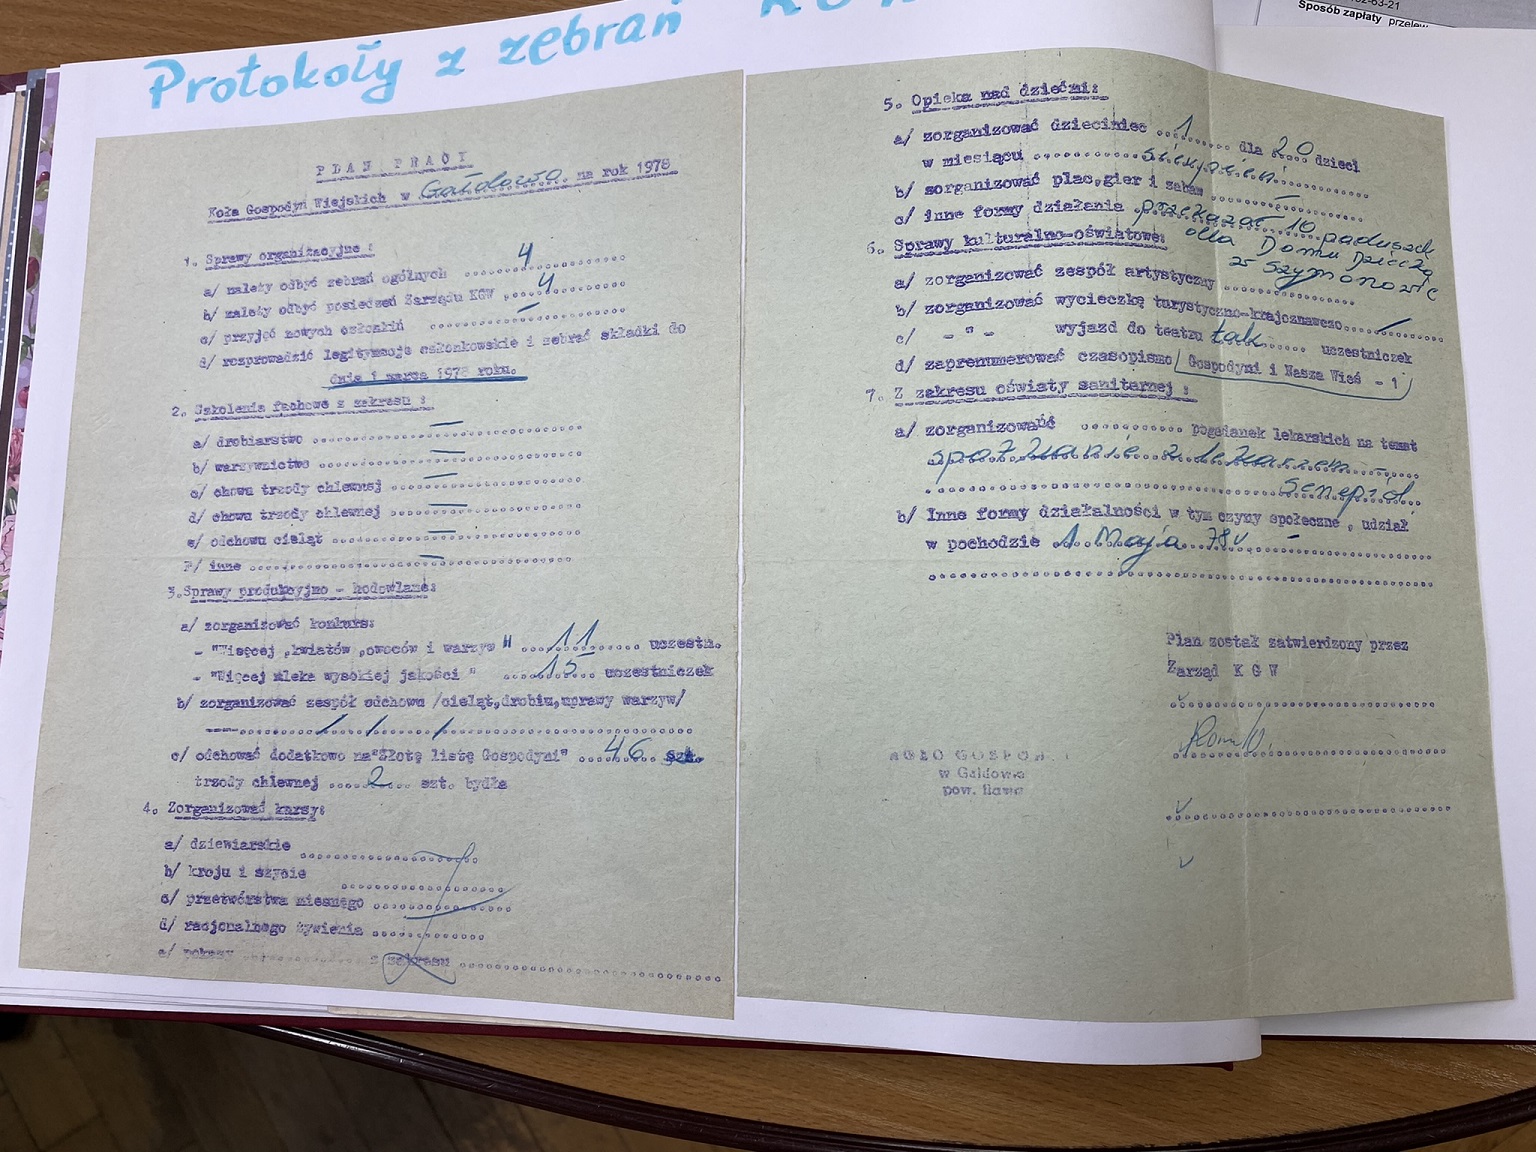 Protokoły z zebrań
02-63-21
Sposób zapłaty przelew
PLAN PRACY
Koła Gospodyń Wiejskich w Gałdowo na rok 1978
1. Sprawy organizacyjne :
a/ należy odbyć zebrań ogólnych ..... 4 .....
b/ należy odbyć posiedzeń Zarządu KGW ..... 4 .....
c/ przyjęć nowych członkiń ..... — .....
d/ rozprowadzić legitymacje członkowskie i zebrać składki do
dnia 1 marca 1978 roku.
2. Szkolenia fachowe z zakresu :
a/ drobiarstwo ..... — .....
b/ warzywnictwo ..... — .....
c/ chowu trzody chlewnej ..... — .....
d/ chowu trzody chlewnej ..... — .....
e/ odchowu cieląt ..... — .....
F/ inne ..... — .....
3. Sprawy produkcyjno - hodowlane:
a/ zorganizować konkurs:
- "Więcej ,kwiatów ,owoców i warzyw " ..... 11 ..... uczestn.
- "Więcej mleka wysokiej jakości " ..... 15 ..... uczestniczek
b/ zorganizować zespół odchowu /cieląt,drobiu,uprawy warzyw/
..... / / / .....
c/ odchować dodatkowo na "Złotę listę Gospodyni" ..... 46 ..... szt.
trzody chlewnej ..... 2 ..... szt. bydła
4. Zorganizować kursy:
a/ dziewiarskie .....
b/ kroju i szycie .....
c/ przetwórstwa miesnęgo .....
d/ racjonalnego żywienia .....
e/ pokazy ..... z zakresu .....
5. Opieka nad dziećmi:
a/ zorganizować dzieciniec ..... 1 ..... dla 20 dzieci
w miesiącu ..... sierpień .....
b/ sorganizować plac,gier i zabaw ..... — .....
c/ inne formy działania przekazać 10 paduszek
dla Domu Dziecka
w Szymonowie
6. Sprawy kulturalno-oświatowe:
a/ zorganizować zespół artystyczny .....
b/ zorganizować wycieczkę turystyczno-krajoznawczo ..... / .....
c/ - " - wyjazd do teatru tak ..... uczestniczek
d/ zaprenumerować czasopismo/ Gospodyni i Nasza Wieś - 1
7. Z zakresu oświaty sanitarnej :
a/ zorganizować ..... pogadanek lekarskich na temat
spotkanie z lekarzem —
..... 
b/ Inne formy działalności w tym czyny społeczne , udział
w pochodzie 1 Maja 78 r —
.....
Plan został zatwierdzony przez
Zarząd K G W
.....
.....
w Gałdowie
pow. Iława
.....